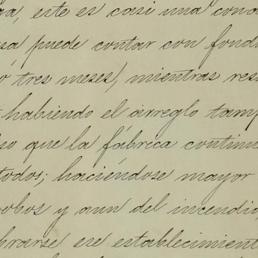 , este es casi una con
sa puede contar con fond
ó tres meses, mientras res
habiendo el arreglo tam
que la fábrica continu
todos; haciéndose mayor
robos y aun del incendio
brarse ese establecimient